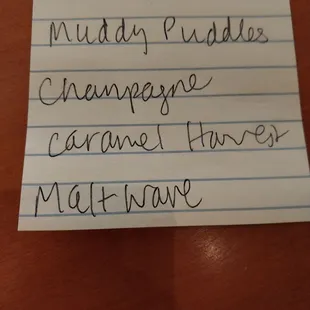 Muddy Puddles
Champagne
Caramel Harvest
Maltwave